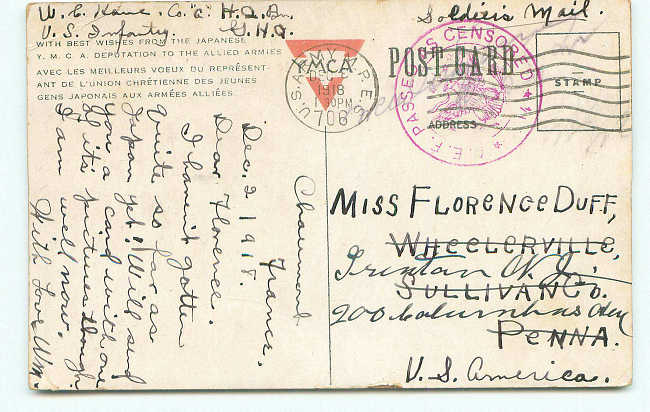 W. C. Kane. Co. "C" H.Q. Bn.
U.S. Infantry. G.H.Q.
Soldier's Mail.
WITH BEST WISHES FROM THE JAPANESE
Y. M. C. A. DEPUTATION TO THE ALLIED ARMIES
AVEC LES MEILLEURS VOEUX DU REPRÉSENT-
ANT DE L'UNION CHRÉTIENNE DES JEUNES
GENS JAPONAIS AUX ARMÉES ALLIÉES.
YMCA
U.S. ARMY M.P.E.S.
DEC
1918
1 30PM
706
POST CARD
A.E.F. PASSED AS CENSORED
STAMP
ADDRESS
Chaumont
France,
Dec. 2, 1918.
Dear Florence.
I haven't gotten
quite so far as
Japan yet. Will send
you a card with one
of its pictures though.
I am well now.
With Love Wm.
MISS FLORENCE DUFF,
WHEELERVILLE,
Trenton N. J.
SULLIVAN Co.
200 Columbus Ave
PENNA.
U. S. America.